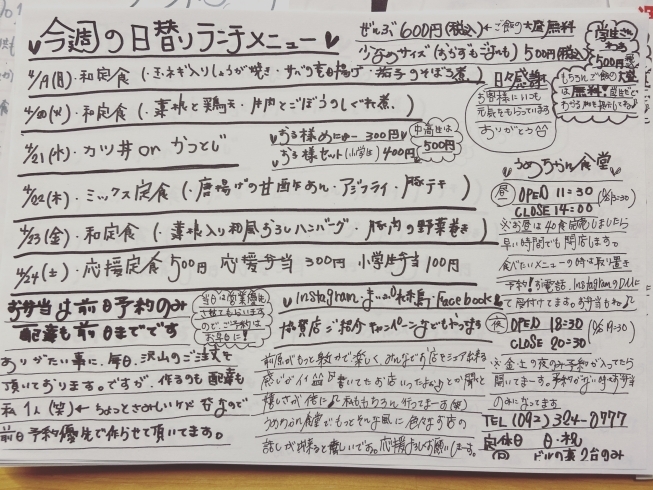 今週の日替りランチメニュー
ぜんぶ 600円(税込) ← ご飯の大盛無料
少なめサイズ(おかずもごはんも) 500円(税込)
学生さん
なら
500円
もちろんご飯の大盛
は無料!
4/19(月)・和定食 (・玉ネギ入りしょうが焼き・サバの竜田揚げ・茄子のそぼろ煮)
4/20(火)・和定食 (・菜根と鶏天・片肉とごぼうのしぐれ煮)
4/21(水)・カツ丼 or かつとじ
お子様めにゅー 300円
お子様セット(小学生) 400円
中高生は
500円
4/22(木)・ミックス定食 (・唐揚げの甘酢あん・アジフライ・豚テキ)
4/23(金)・和定食 (・菜根入り和風おろしハンバーグ・豚肉の野菜巻き)
4/24(土)・応援定食 500円 応援弁当 300円 小学生弁当 100円
日々感謝
お客様にいつも
元気をもらっています
ありがとう
お弁当は前日予約のみ
配達も前日までです
当日は営業優先
させてもらいます
ので、ご予約は
お早目に!
ありがたい事に、毎日、沢山のご注文を
頂いております。ですが、作るのも配達も
私1人(笑) ← ちょっとさみしいケド なので
前日予約優先で作らせて頂いてます。
Instagram・ ・Facebook
協賛店ご紹介キャンペーンなどもやってます
前原がもっと楽しく、みんなでお店をシェア出来る
うめのちかん食堂でもっとそんな風に色々なお店の
話しが出来ると嬉しいです。応援よろしくお願いします。
食堂
昼 OPEN 11:30
CLOSE 14:00
※お昼は40食完売しましたら
早い時間でも閉店します。
食べたいメニューの時は取り置き
予約!お電話、InstagramのDMに
て受付けてます。お弁当もね♪
夜 OPEN 18:30
CLOSE 20:30
※金土の夜のみ予約が入ってたら
開いてまーす。予約がない時はお弁当
のみになってます
TEL (092) 324-0777
定休日 日・祝
P ビルの裏 2台のみ